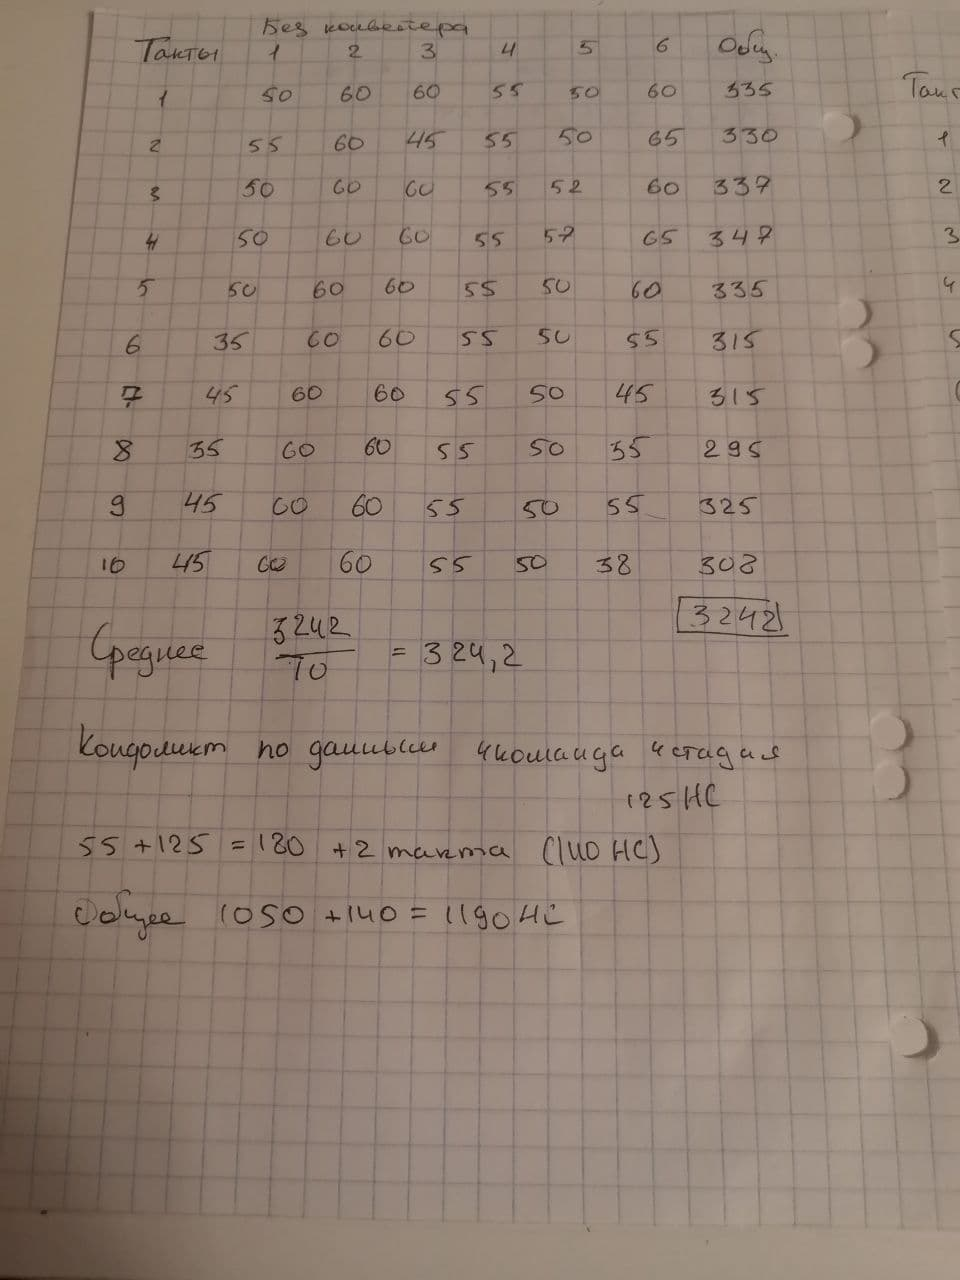 Без конвейера
Такты 1 2 3 4 5 6 Общ.
1 50 60 60 55 50 60 335
2 55 60 45 55 50 65 330
3 50 60 60 55 52 60 337
4 50 60 60 55 57 65 347
5 50 60 60 55 50 60 335
6 35 60 60 55 50 55 315
7 45 60 60 55 50 45 315
8 35 60 60 55 50 35 295
9 45 60 60 55 50 55 325
10 45 60 60 55 50 38 308
3242
Среднее 3242/10 = 324,2
Конфликт по данным 4 команда 4 стадия
125 НС
55 + 125 = 180 + 2 такта (140 НС)
Общее 1050 + 140 = 1190 НС
Такт
1
2
3
4
5